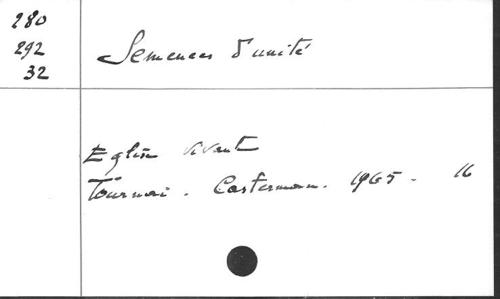 280
292
32
Semences d'unité
Eglise vivante
Tournai. Casterman. 1965. 16